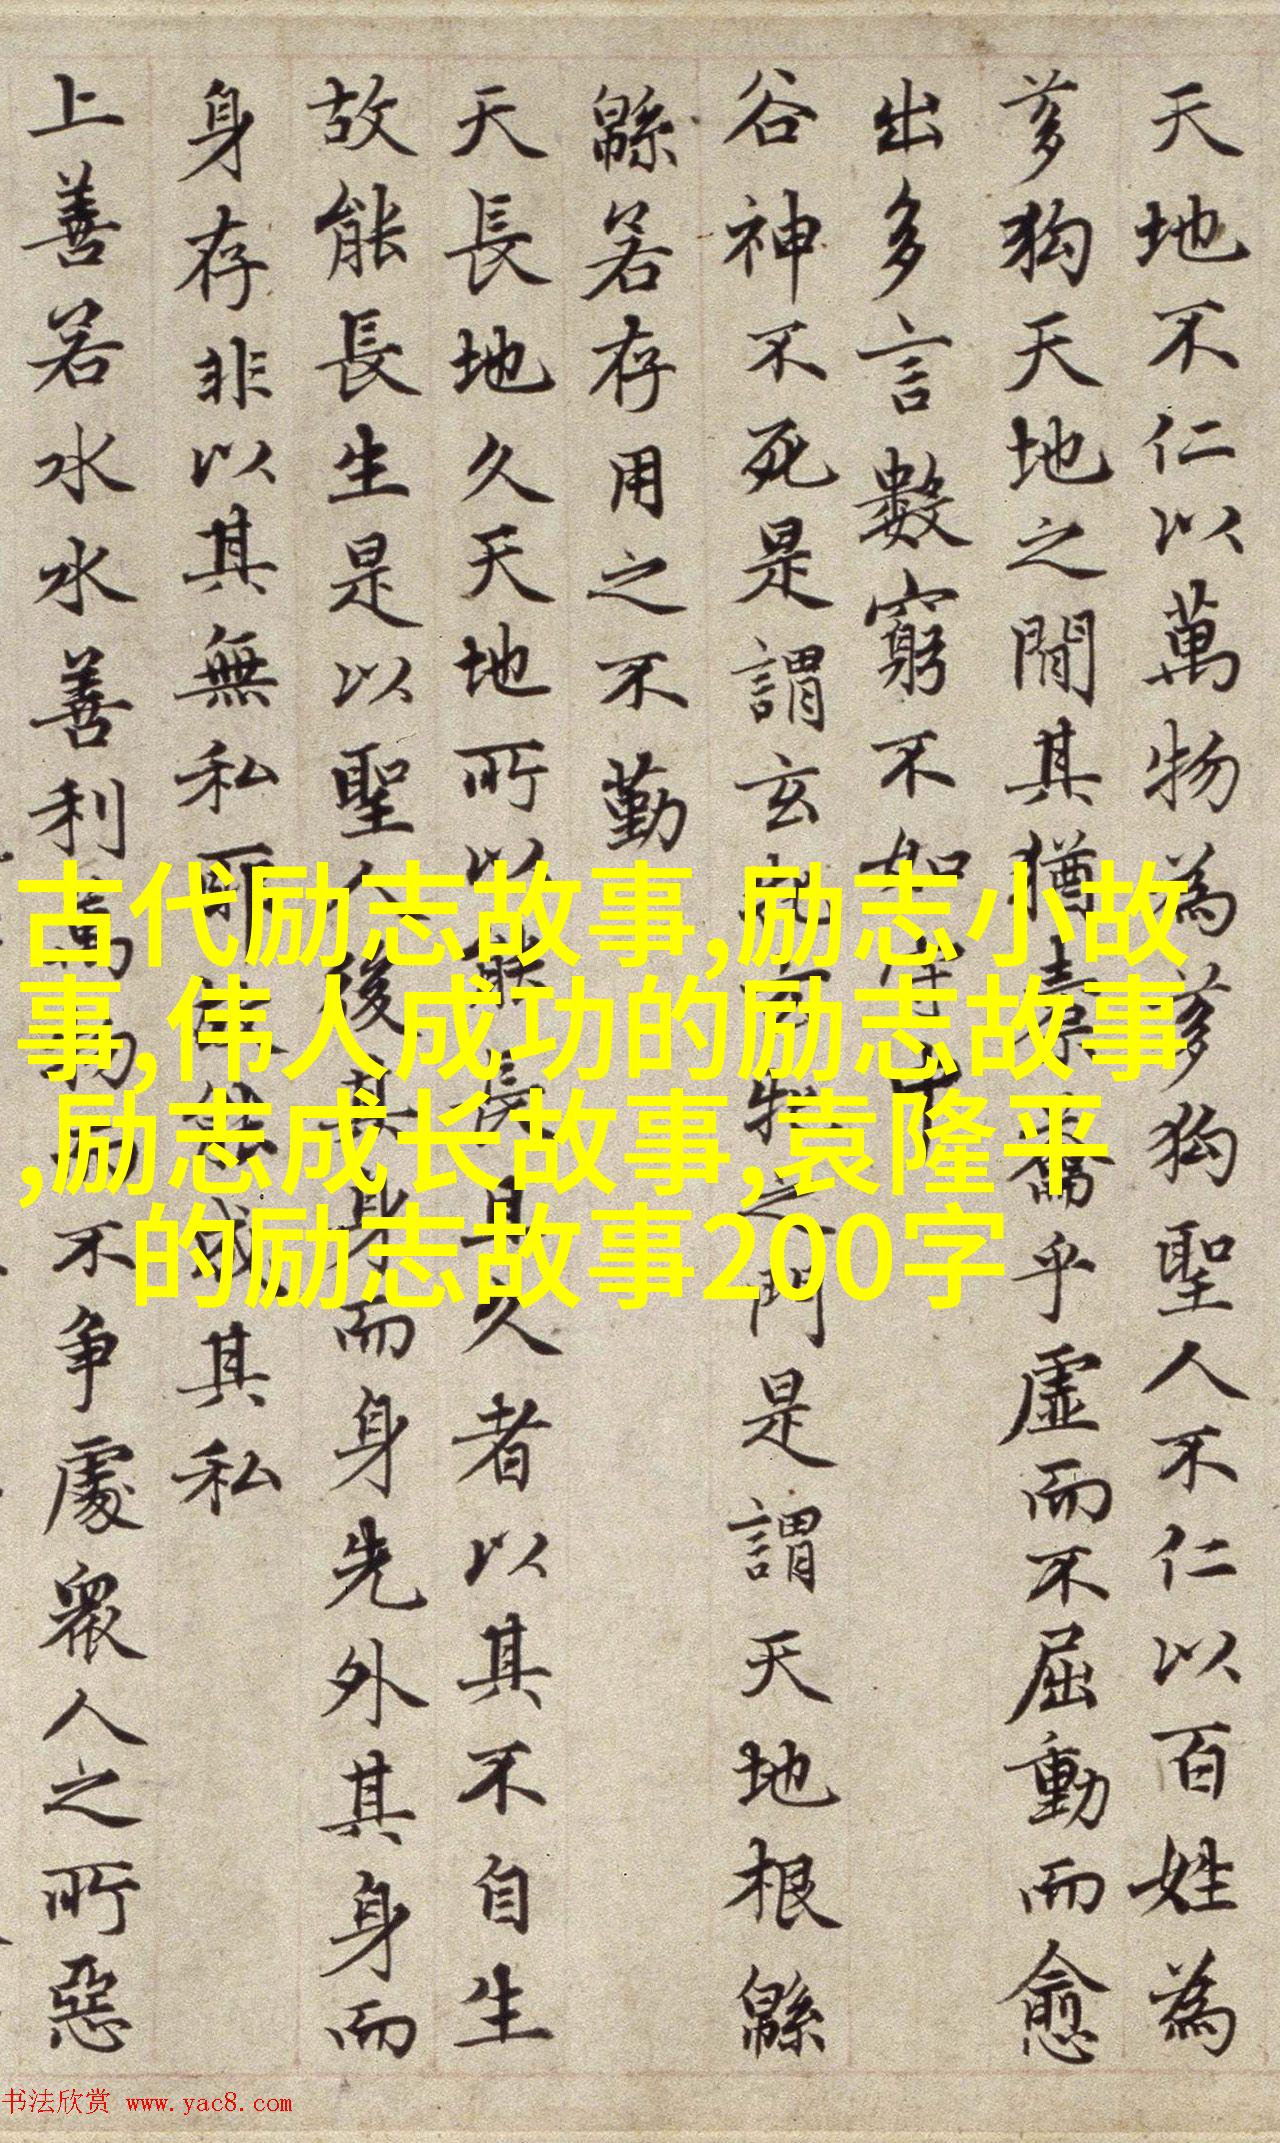 天地不仁以萬物為芻狗聖人不仁以百姓為
芻狗天地之間其猶橐籥乎虛而不屈動而愈
出多言數窮不如守中
谷神不死是謂玄牝玄牝之門是謂天地根緜
緜若存用之不勤
天長地久天地所以能長且久者以其不自生
故能長生是以聖人後其身而身先外其身而
身存非以其無私耶故能成其私
上善若水水善利萬物而不争處衆人之所惡
古代励志故事,励志小故
事,伟人成功的励志故事
,励志成长故事,袁隆平
的励志故事200字
书法欣赏 www.yac8.com